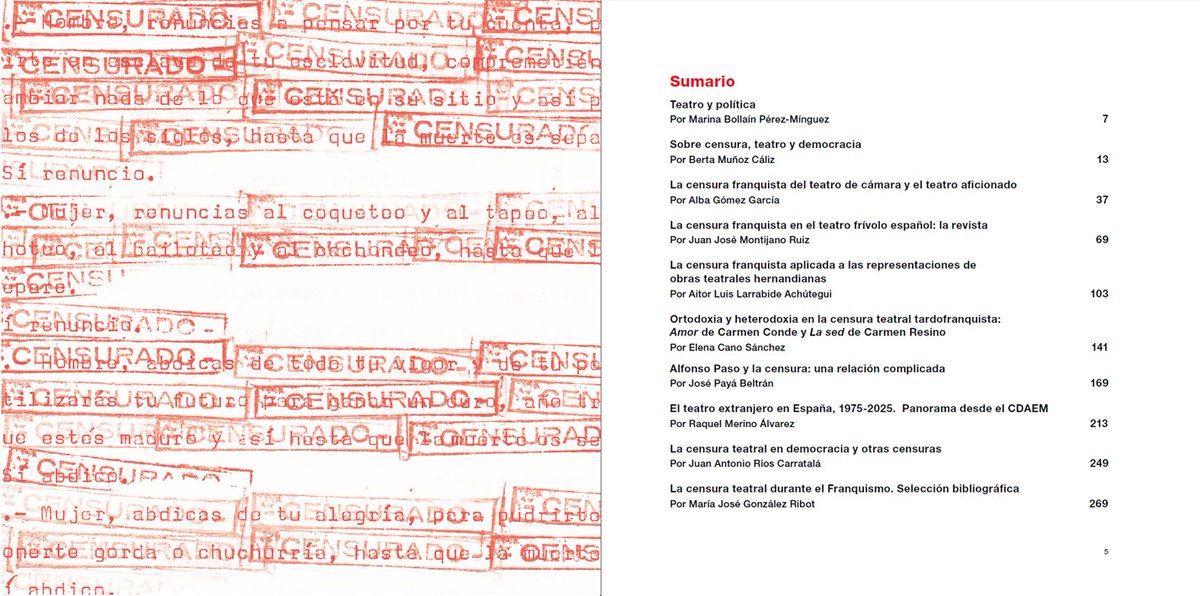 CENSURADO
.- Hombre, renuncias a pensar por tu cuenta, p
irte en esclavo de tu esclavitud, comprometién
CENSURADO
ambiar nada de lo que está en su sitio y así p
los de los siglos, hasta que la muerte os sepa
Sí renuncio.
.- Mujer, renuncias al coqueteo y al tapeo, al
al bailoteo y al hasta que
epare.
í renuncio.
CENSURADO
Hombre, abdicas de todo tu valor y de tu po
tilizarás tu futuro para ganar un duro, año tr
ue estés maduro y así hasta que la muerte os se
Sí abdico.
.- Mujer, abdicas de tu alegría, para pudrirte
onerte gorda o chuchurría, hasta que la muerte
í abdico.
Sumario
Teatro y política
Por Marina Bollaín Pérez-Mínguez 7
Sobre censura, teatro y democracia
Por Berta Muñoz Cáliz 13
La censura franquista del teatro de cámara y el teatro aficionado
Por Alba Gómez García 37
La censura franquista en el teatro frívolo español: la revista
Por Juan José Montijano Ruiz 69
La censura franquista aplicada a las representaciones de
obras teatrales hernandianas
Por Aitor Luis Larrabide Achútegui 103
Ortodoxia y heterodoxia en la censura teatral tardofranquista:
Amor de Carmen Conde y La sed de Carmen Resino
Por Elena Cano Sánchez 141
Alfonso Paso y la censura: una relación complicada
Por José Payá Beltrán 169
El teatro extranjero en España, 1975-2025. Panorama desde el CDAEM
Por Raquel Merino Álvarez 213
La censura teatral en democracia y otras censuras
Por Juan Antonio Ríos Carratalá 249
La censura teatral durante el Franquismo. Selección bibliográfica
Por María José González Ribot 269
5